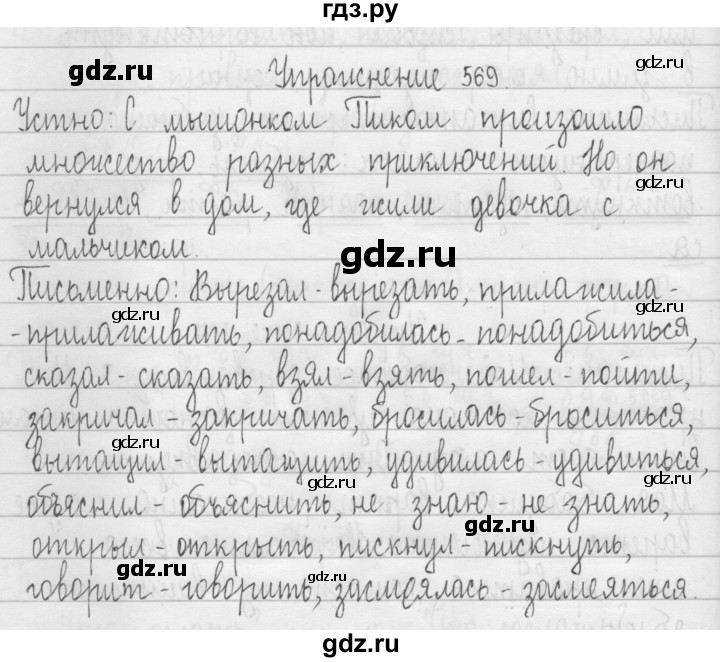 гдз.ру
gdz.ru gdz.ru
Упражнение 569.
Устно: С мышонком Пиком произошло
множество разных приключений. Но он
gdz.ru gdz.ru
вернулся в дом, где жили девочка с
мальчиком. gdz.ru
Письменно: Вырезал - вырезать, прилажила-
gdz.ru gdz.ru
-прилаживать, понадобилась - понадобиться,
сказал - сказать, взял - взять, пошел - пойти,
закричал - закричать, бросилась - броситься,
gdz.ru gdz.ru
вытащил - вытащить, удивилась - удивиться,
gdz.ru
объяснил - объяснить, не знаю - не знать,
gdz.ru
открыл - открыть, пискнул - пискнуть,
gdz.ru gdz.ru
говорит - говорить, засмеялась - засмеяться.
gdz.ru
gdz.ru